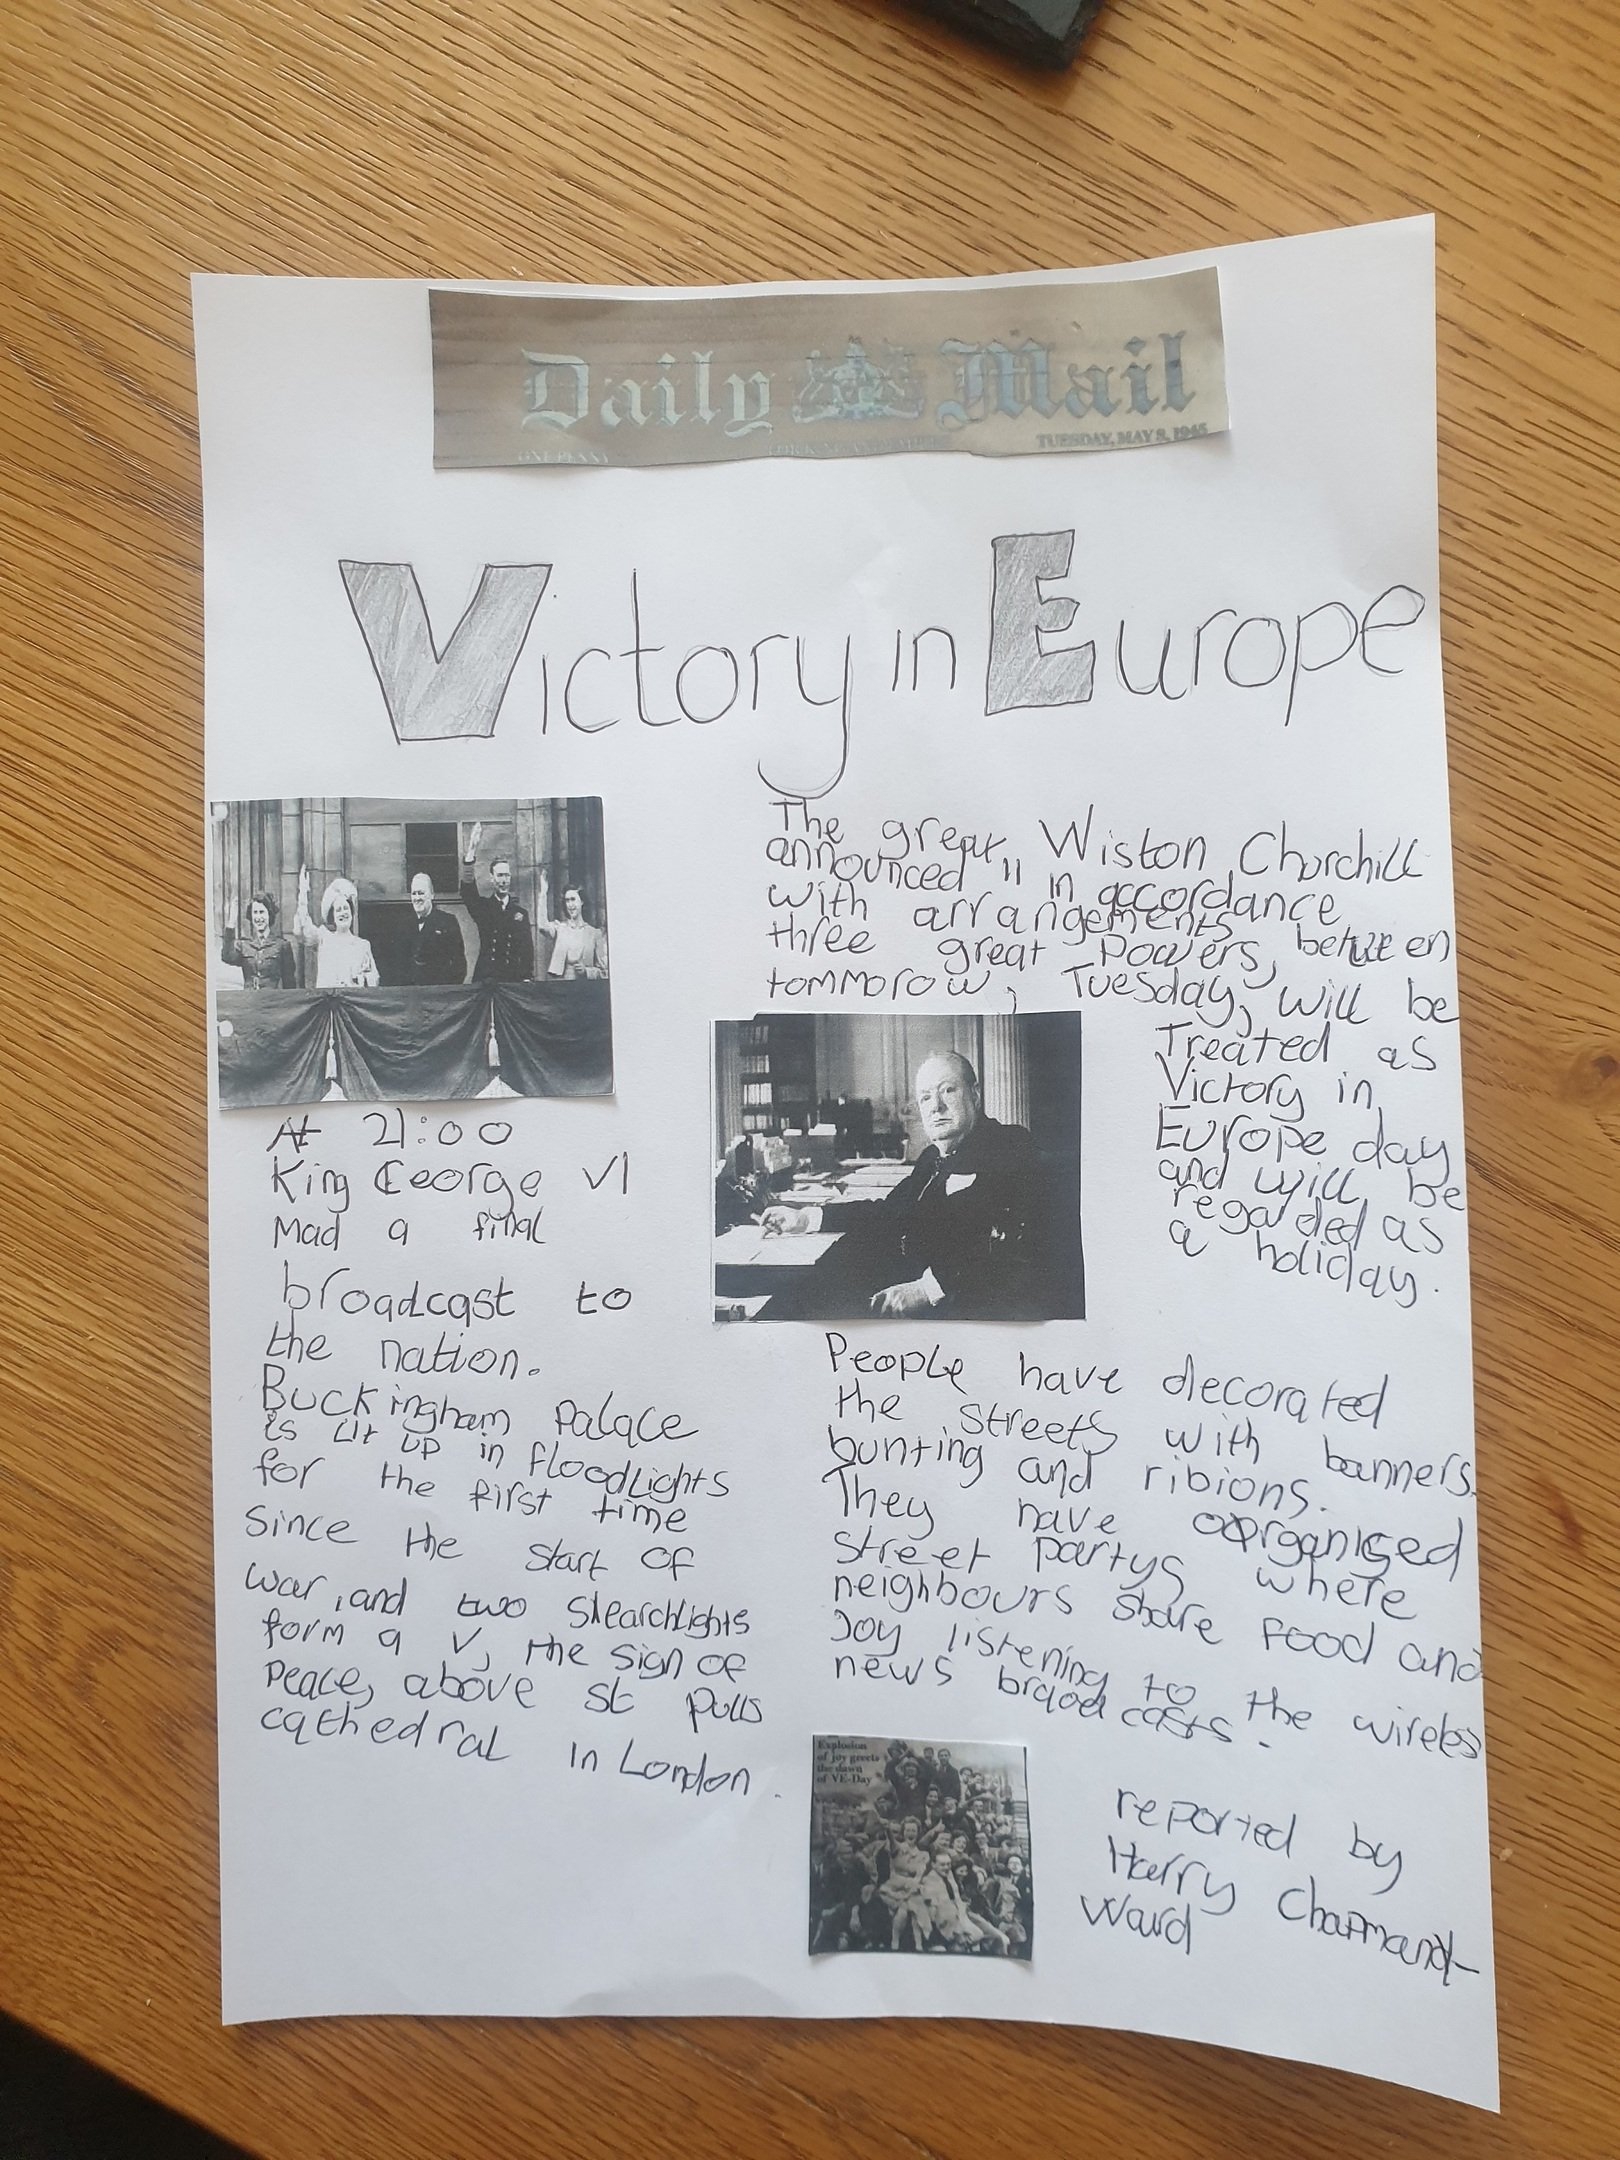 Daily Mail
ONE PENNY
TUESDAY, MAY 8, 1945
Victory in Europe
The great, Wiston Churchill
announced " in accordance
with arrangements between
three great powers,
tommorow, Tuesday, will be
Treated as
Victory in
Europe day
and will be
regarded as
a holiday.
At 21:00
King George VI
Mad a final
broadcast to
the nation.
Buckingham Palace
is lit up in floodlights
for the first time
since the start of
war, and two searchlights
form a V, the sign of
peace, above st puls
cathedral in London.
People have decorated
the streets with banners,
bunting and ribions.
They have organised
street partys where
neighbours share food and
Joy listening to the wireless
news broadcasts.
Explosion
of joy greets
the dawn
of VE-Day
reported by
Harry Chapman-
Ward